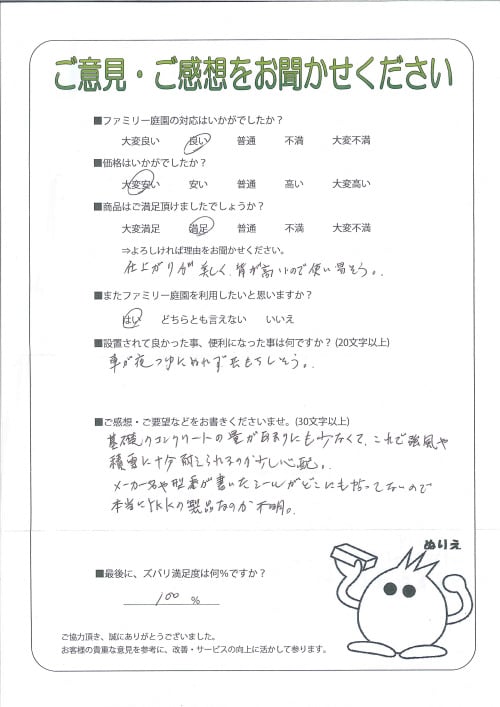 ご意見・ご感想をお聞かせください
■ファミリー庭園の対応はいかがでしたか?
大変良い 良い 普通 不満 大変不満
■価格はいかがでしたか?
大変安い 安い 普通 高い 大変高い
■商品はご満足頂けましたでしょうか?
大変満足 満足 普通 不満 大変不満
⇒よろしければ理由をお聞かせください。
仕上がりが美しく、背が高いので使い易そう。
■またファミリー庭園を利用したいと思いますか?
はい どちらとも言えない いいえ
■設置されて良かった事、便利になった事は何ですか? (20文字以上)
車が夜つゆにぬれず長もちしそう。
■ご感想・ご要望などをお書きくださいませ。(30文字以上)
基礎のコンクリートの量があまりにも少なくて、これで強風や
積雪に十分耐えられるのか少し心配。
メーカー名や型番が書いたシールがどこにも貼ってないので
本当にYKKの製品なのか不明。
ぬりえ
■最後に、ズバリ満足度は何%ですか?
100 %
ご協力頂き、誠にありがとうございました。
お客様の貴重な意見を参考に、改善・サービスの向上に活かして参ります。